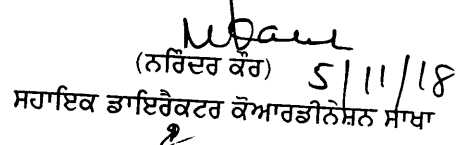 (ਨਰਿੰਦਰ ਕੌਰ) 5/11/18
ਸਹਾਇਕ ਡਾਇਰੈਕਟਰ ਕੋਆਰਡੀਨੇਸ਼ਨ ਸਾਖਾ